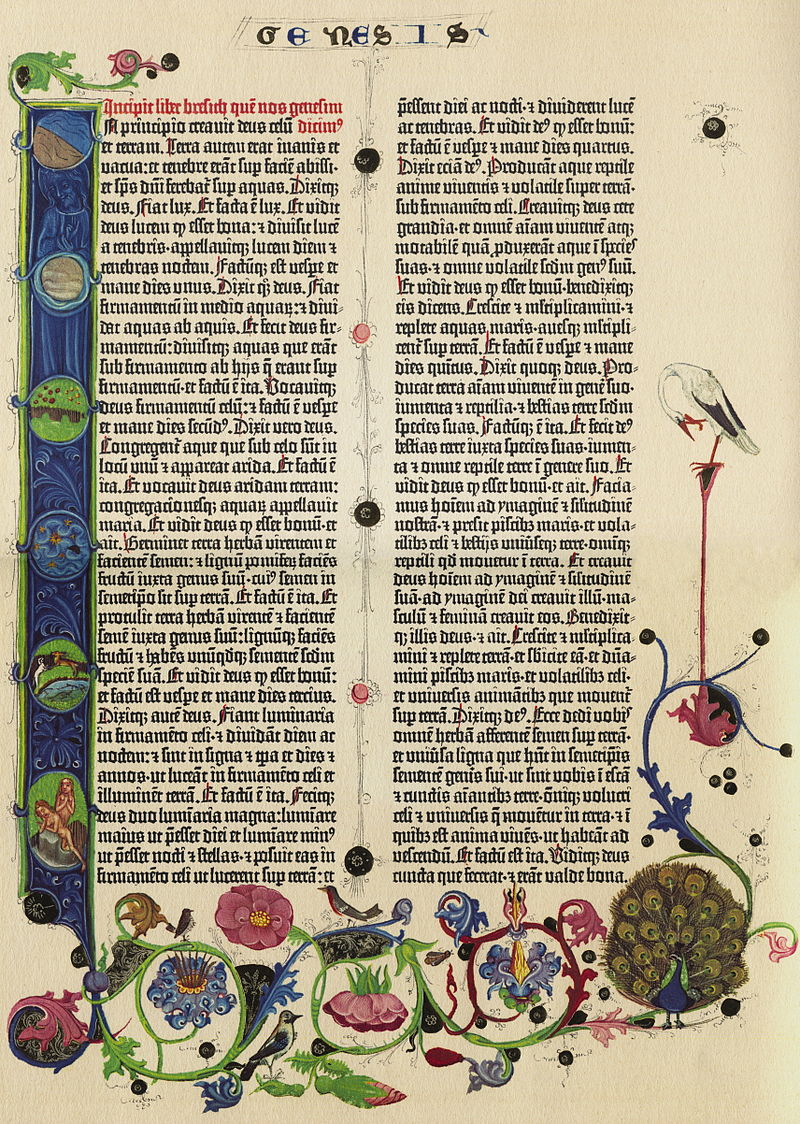 GENESIS
Incipit liber bresith quē nos genesim
A principio creauit deus celū dicimꝰ
et terram. Terra autem erat inanis et
vacua: et tenebre erāt sup faciē abissi:
et spūs dñi ferebat̄ sup aquas. Dixitqꝫ
deus. Fiat lux. Et facta ē lux. Et vidit
deus lucem ꝙ esset bona: ⁊ diuisit lucē
a tenebris. appellauitqꝫ lucem diem ⁊
tenebras noctem. Factūqꝫ est vespe et
mane dies vnus. Dixit qꝫ deus. Fiat
firmamentū in medio aquaꝝ: ⁊ diui-
dat aquas ab aquis. Et fecit deus fir-
mamentū: diuisitqꝫ aquas que erāt
sub firmamento ab hijs q̄ erant sup
firmamentū. et factū ē ita. Vocauitqꝫ
deus firmamentū celū: ⁊ factū ē vespe
et mane dies secūdꝰ. Dixit vero deus.
Congregent̄ aque que sub celo sūt in
locū vnū ⁊ appareat arida. Et factū ē
ita. Et vocauit deus aridam terram:
congregacionesqꝫ aquaꝝ appellauit
maria. Et vidit deus ꝙ esset bonū. et
ait. Germinet terra herbā virentem et
facientē semen: ⁊ lignū pomifeꝝ faciēs
fructū iuxta genus suū. cuiꝰ semen in
semetipo sit sup terrā. Et factū ē ita. Et
protulit terra herbā virentē ⁊ facientē
semē iuxta genus suū: lignūqꝫ faciēs
fructū ⁊ habēs vnūqdqꝫ sementē scdm
speciē suā. Et vidit deus ꝙ esset bonū:
et factū est vespe et mane dies tercius.
Dixitqꝫ autē deus. Fiant luminaria
in firmamēto celi. ⁊ diuidāt diem ac
noctem: ⁊ sint in signa ⁊ tpa et dies ⁊
annos. ut luceāt in firmamēto celi et
illuminēt terrā. Et factū ē ita. Fecitqꝫ
deus duo lumīaria magna: lumīare
maius ut pesset diei et lumīare minꝰ
ut pesset nocti ⁊ stellas. ⁊ posuit eas in
firmamēto celi ut lucerent sup terrā: et
pessent diei ac nocti. ⁊ diuiderent lucē
ac tenebras. Et vidit deꝰ ꝙ esset bonū:
et factū ē vespe ⁊ mane dies quartus.
Dixit eciā deꝰ. Producāt aque reptile
anime viuentis ⁊ volatile super terrā.
sub firmamēto celi. Creauitqꝫ deus cete
grandia. et omnē aīam viuentē atqꝫ
motabilē quā pduxerāt aque ī species
suas. ⁊ omne volatile scdm genꝰ suū.
Et vidit deus ꝙ esset bonū. benedixitqꝫ
eis dicens. Crescite ⁊ mltiplicamini. ⁊
replete aquas maris. auesqꝫ mltipli-
cent̄ sup terrā. Et factū ē vespe ⁊ mane
dies quītus. Dixit quoqꝫ deus. Pro-
ducat terra aīam viuentē in genē suo.
iumenta ⁊ reptilia. ⁊ bestias terre scdm
species suas. Factūqꝫ ē ita. Et fecit deꝰ
bestias terre iuxta species suas. iumen-
ta ⁊ omne reptile terre ī genere suo. Et
vidit deus ꝙ esset bonū. et ait. Facia-
mus hoīem ad ymaginē ⁊ sīlitudinē
nostrā. ⁊ presit piscibꝫ maris. et vola-
tilibꝫ celi ⁊ bestijs vniūseqꝫ terre. omīqꝫ
reptili qd mouetur ī terra. Et creauit
deus hoīem ad ymaginē ⁊ sīlitudinē
suā. ad ymaginē dei creauit illū. ma-
sculū ⁊ feminā creauit eos. Benedixit-
qꝫ illis deus. ⁊ ait. Crescite ⁊ mltiplica
mini ⁊ replete terrā. et sbicite eā. et dñā-
mini piscibꝫ maris. et volatilibꝫ celi.
et vniuersis animātibꝫ que mouent̄
sup terrā. Dixitqꝫ deꝰ. Ecce dedi vobis
omnē herbā afferentē semen sup terrā.
et vniūsa ligna que hñt in semetipis
sementē genis sui. ut sint vobis ī escā
⁊ cunctis aīantibꝫ terre. oīqꝫ volucri
celi ⁊ vniuersis q̄ mouētur in terra. ⁊ ī
quibꝫ est anima viuēs. ut habeāt ad
vescendū. Et factū est ita. Viditqꝫ deus
cuncta que fecerat. ⁊ erāt valde bona.